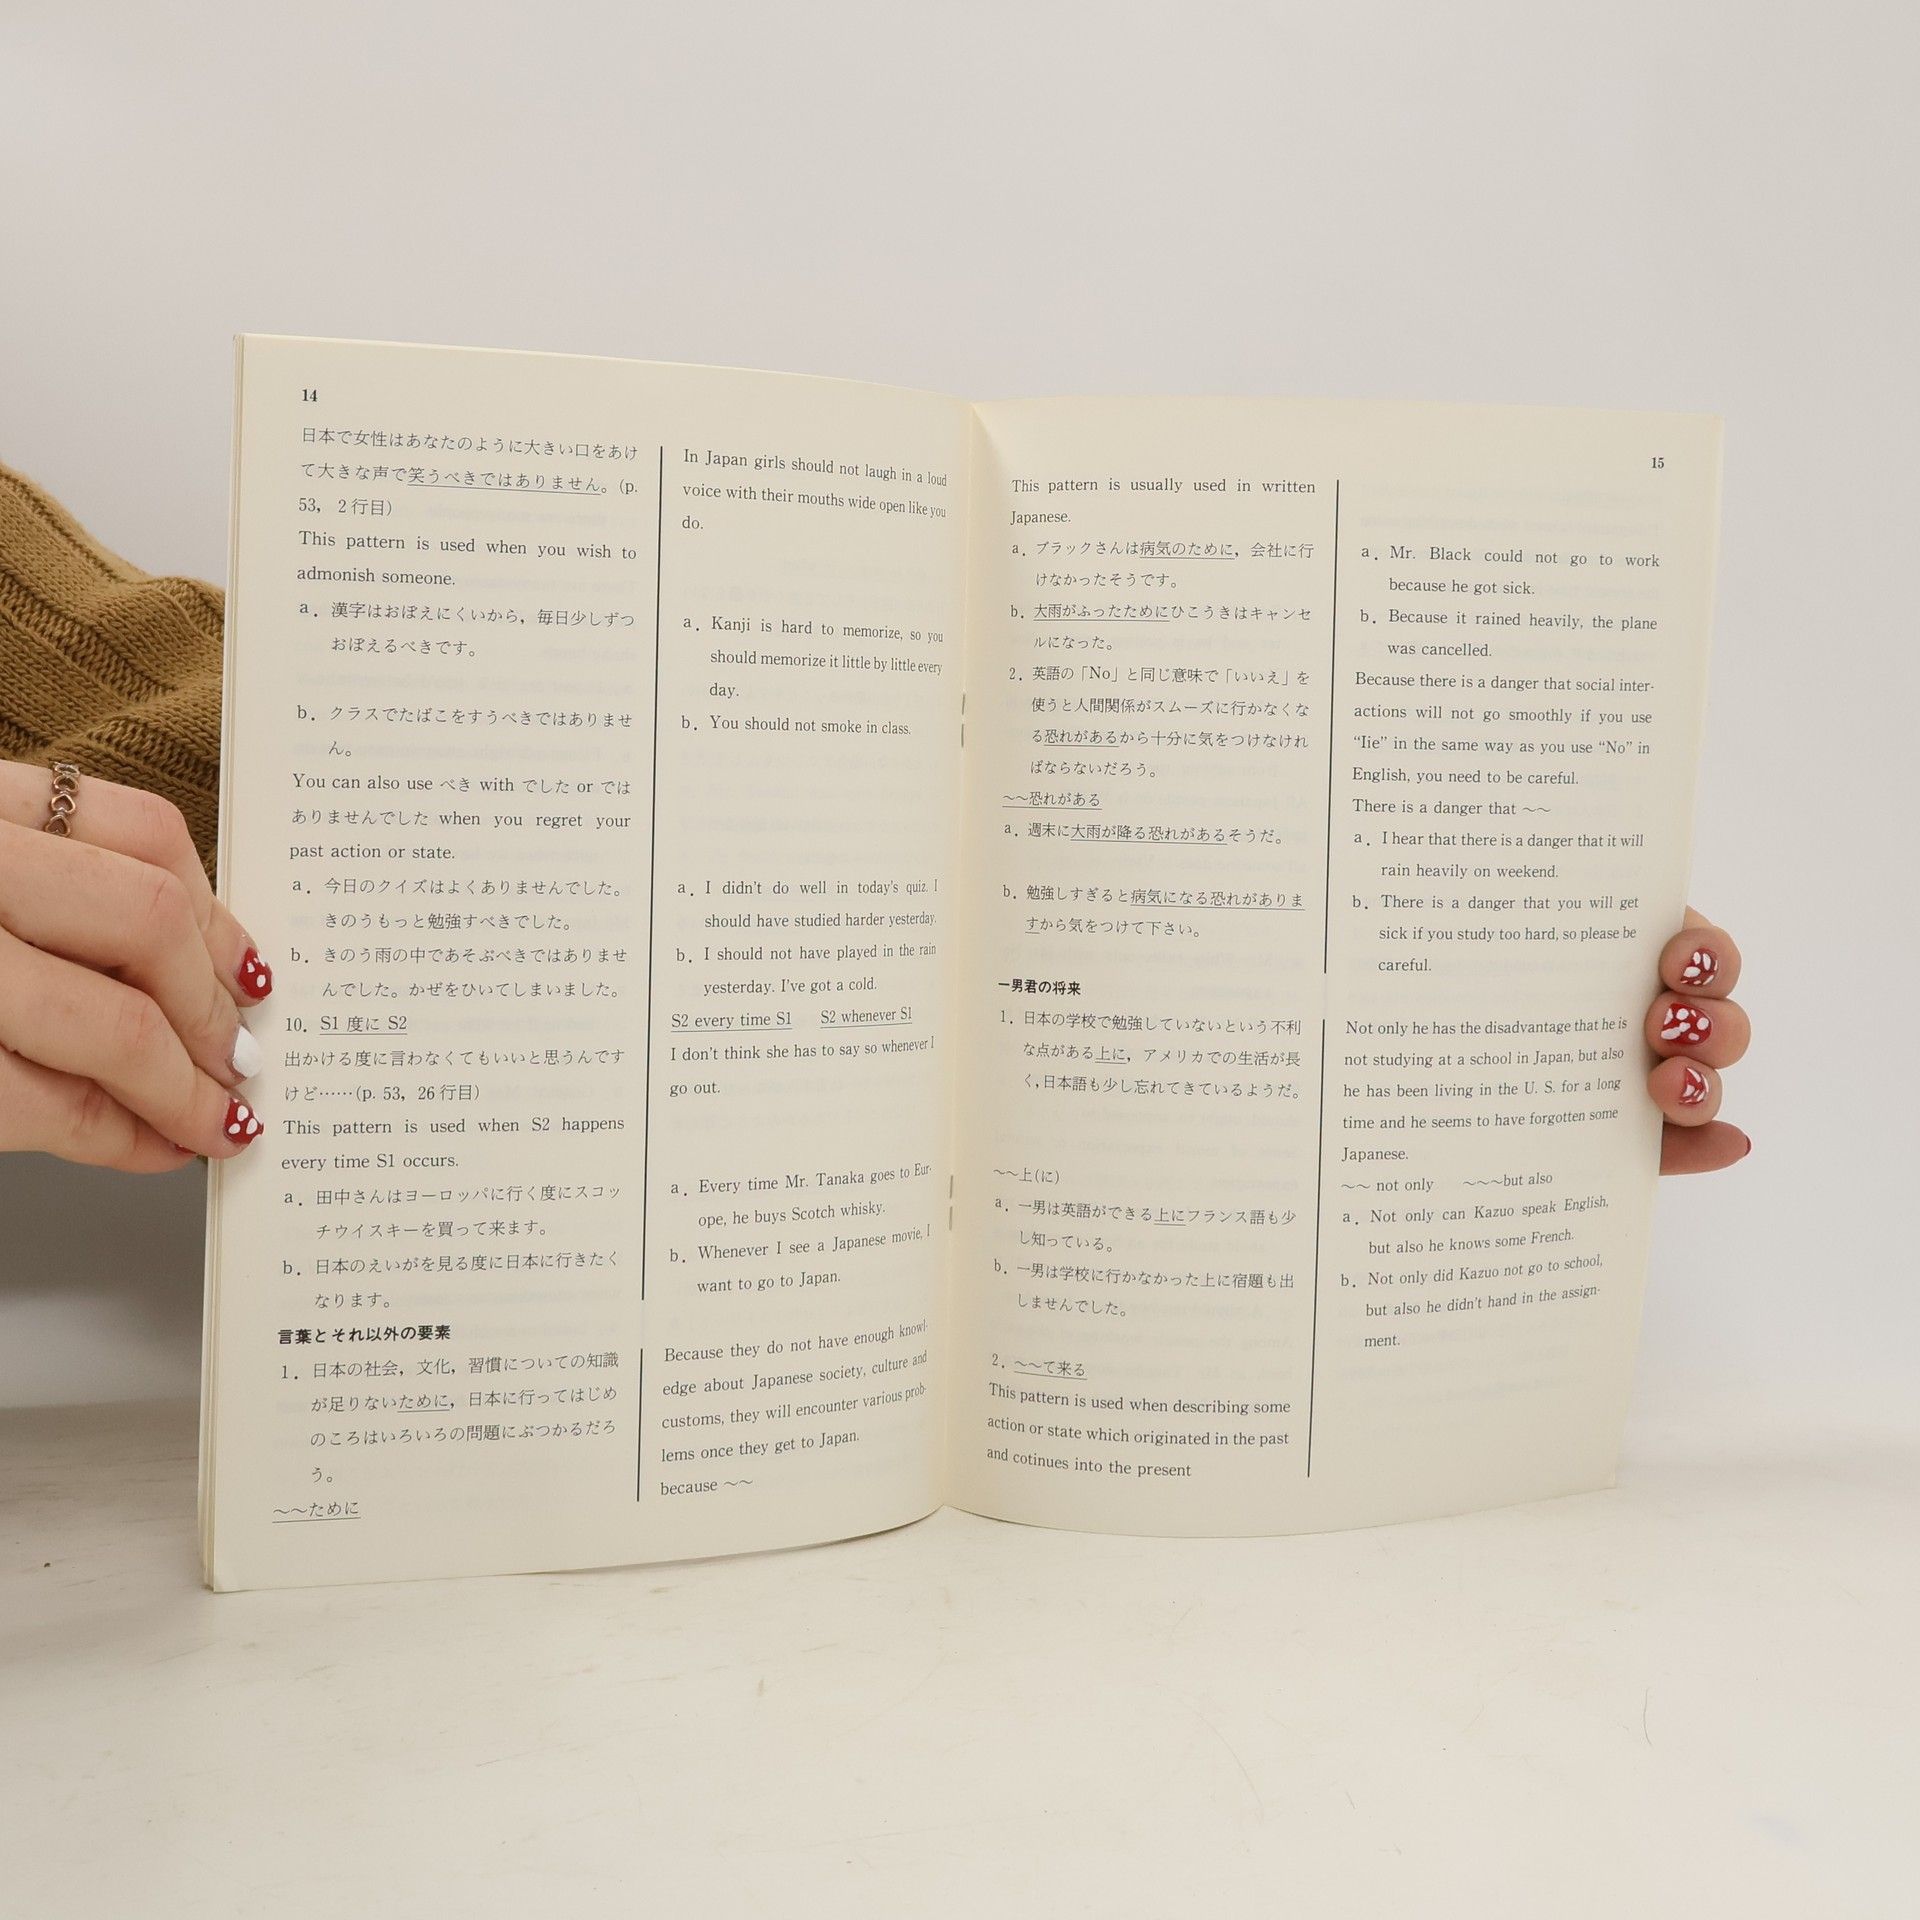 14
日本で女性はあなたのように大きい口をあけ
て大きな声で笑うべきではありません。(p.
53, 2行目)
This pattern is used when you wish to
admonish someone.
a. 漢字はおぼえにくいから，毎日少しずつ
おぼえるべきです。
b. クラスでたばこをすうべきではありませ
ん。
You can also use べき with でした or では
ありませんでした when you regret your
past action or state.
a. 今日のクイズはよくありませんでした。
きのうもっと勉強すべきでした。
b. きのう雨の中であそぶべきではありませ
んでした。かぜをひいてしまいました。
10. S1 度に S2
出かける度に言わなくてもいいと思うんです
けど……(p. 53, 26行目)
This pattern is used when S2 happens
every time S1 occurs.
a. 田中さんはヨーロッパに行く度にスコッ
チウイスキーを買って来ます。
b. 日本のえいがを見る度に日本に行きたく
なります。
言葉とそれ以外の要素
1. 日本の社会，文化，習慣についての知識
が足りないために，日本に行ってはじめ
のころはいろいろの問題にぶつかるだろ
う。
～～ために
In Japan girls should not laugh in a loud
voice with their mouths wide open like you
do.
a. Kanji is hard to memorize, so you
should memorize it little by little every
day.
b. You should not smoke in class.
a. I didn't do well in today's quiz. I
should have studied harder yesterday.
b. I should not have played in the rain
yesterday. I've got a cold.
S2 every time S1 S2 whenever S1
I don't think she has to say so whenever I
go out.
a. Every time Mr. Tanaka goes to Eur-
ope, he buys Scotch whisky.
b. Whenever I see a Japanese movie, I
want to go to Japan.
Because they do not have enough knowl-
edge about Japanese society, culture and
customs, they will encounter various prob-
lems once they get to Japan.
because ～～
15
This pattern is usually used in written
Japanese.
a. ブラックさんは病気のために，会社に行
けなかったそうです。
b. 大雨がふったためにひこうきはキャンセ
ルになった。
2. 英語の「No」と同じ意味で「いいえ」を
使うと人間関係がスムーズに行かなくな
る恐れがあるから十分に気をつけなけれ
ばならないだろう。
～～恐れがある
a. 週末に大雨が降る恐れがあるそうだ。
b. 勉強しすぎると病気になる恐れがありま
すから気をつけて下さい。
一男君の将来
1. 日本の学校で勉強していないという不利
な点がある上に，アメリカでの生活が長
く，日本語も少し忘れてきているようだ。
～～上(に)
a. 一男は英語ができる上にフランス語も少
し知っている。
b. 一男は学校に行かなかった上に宿題も出
しませんでした。
2. ～～て来る
This pattern is used when describing some
action or state which originated in the past
and cotinues into the present
a. Mr. Black could not go to work
because he got sick.
b. Because it rained heavily, the plane
was cancelled.
Because there is a danger that social inter-
actions will not go smoothly if you use
“Iie” in the same way as you use “No” in
English, you need to be careful.
There is a danger that ～～
a. I hear that there is a danger that it will
rain heavily on weekend.
b. There is a danger that you will get
sick if you study too hard, so please be
careful.
Not only he has the disadvantage that he is
not studying at a school in Japan, but also
he has been living in the U. S. for a long
time and he seems to have forgotten some
Japanese.
～～ not only ～～～but also
a. Not only can Kazuo speak English,
but also he knows some French.
b. Not only did Kazuo not go to school,
but also he didn't hand in the assign-
ment.